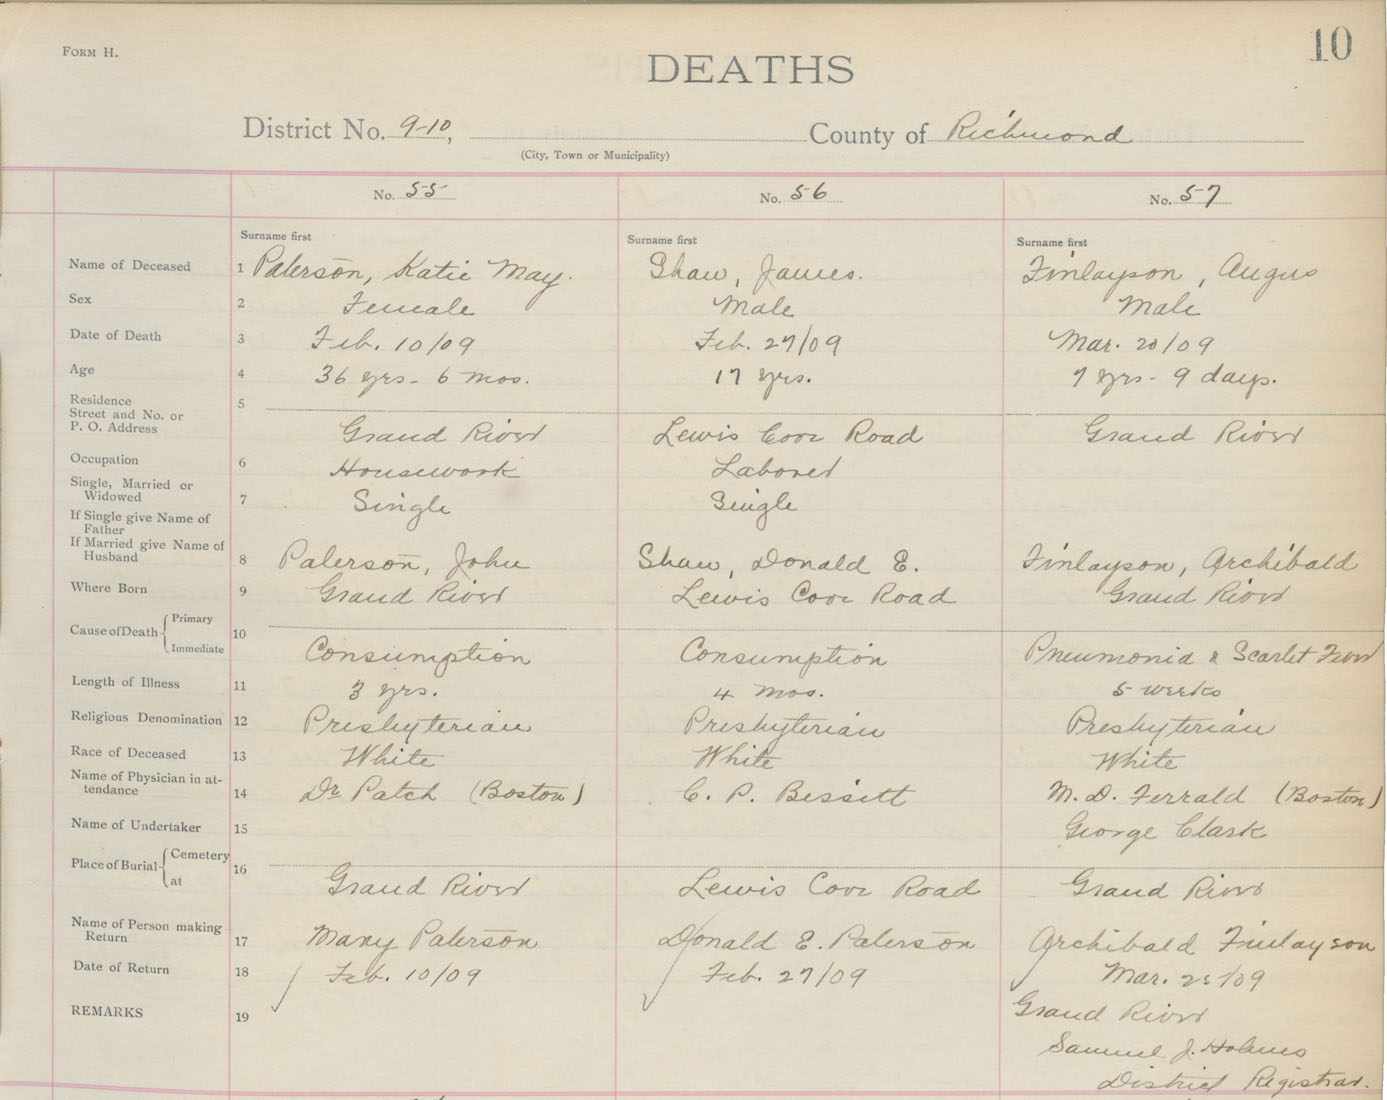 Form H.
10
DEATHS
District No. 9-10, County of Richmond
(City, Town or Municipality)
No. 55 No. 56 No. 57
Surname first Surname first Surname first
Name of Deceased 1 Paterson, Katie May. Shaw, James. Finlayson, Angus
Sex 2 Female Male Male
Date of Death 3 Feb. 10/09 Feb. 27/09 Mar. 20/09
Age 4 36 yrs - 6 mos. 17 yrs. 7 yrs - 9 days.
Residence 5
Street and No. or
P. O. Address Grand River Lewis Cove Road Grand River
Occupation 6 Housework Laborer
Single, Married or
Widowed 7 Single Single
If Single give Name of
Father
If Married give Name of
Husband 8 Paterson, John Shaw, Donald E. Finlayson, Archibald
Where Born 9 Grand River Lewis Cove Road Grand River
Cause of Death Primary 10
Immediate Consumption Consumption Pneumonia & Scarlet Fever
Length of Illness 11 3 yrs. 4 mos. 5 weeks
Religious Denomination 12 Presbyterian Presbyterian Presbyterian
Race of Deceased 13 White White White
Name of Physician in at-
tendance 14 Dr Patch (Boston) C. P. Bissett M. D. Ferrald (Boston)
Name of Undertaker 15 George Clark
Place of Burial Cemetery 16
at Grand River Lewis Cove Road Grand River
Name of Person making
Return 17 Mary Paterson Donald E. Paterson Archibald Finlayson
Date of Return 18 Feb. 10/09 Feb. 27/09 Mar. /09
REMARKS 19 Grand River
Samuel J. Holmes
District Registrar.